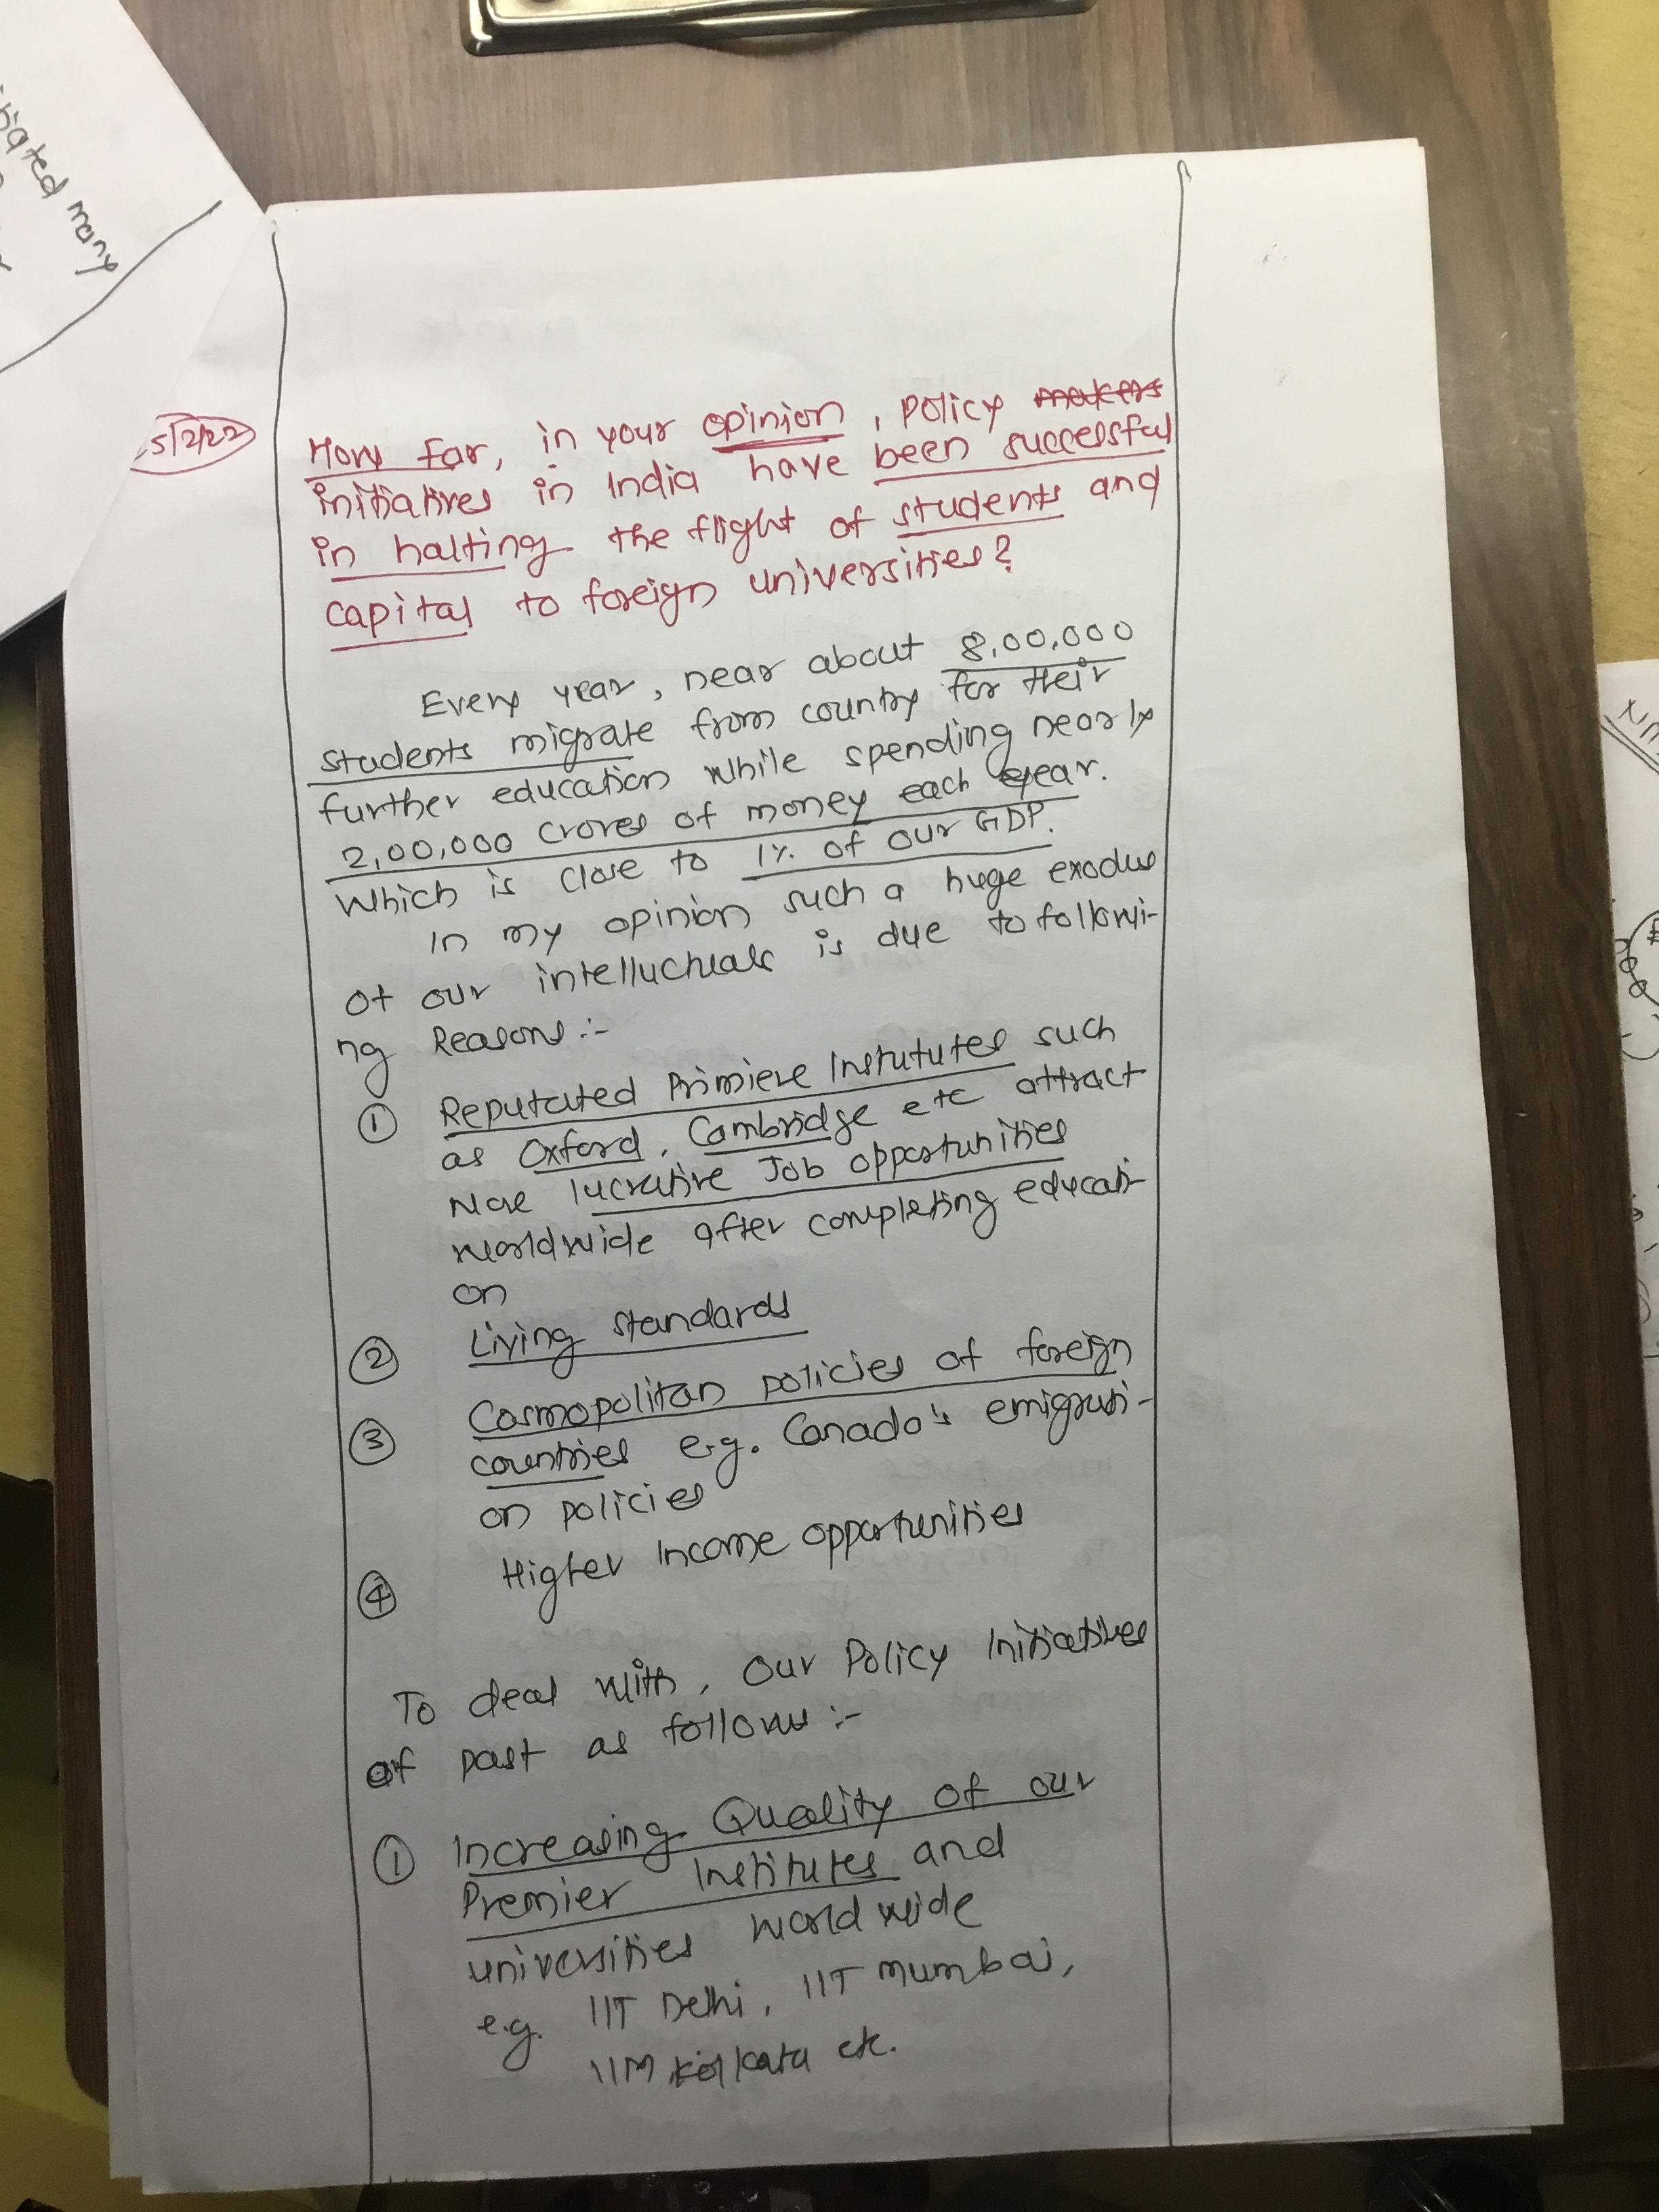 iated many
5/2/22
How far, in your opinion, Policy makers
initiatives in India have been successful
in halting the flight of students and
capital to foreign universities?
Every year, near about 8,00,000
students migrate from country for their
further education while spending nearly
2,00,000 crores of money each year.
Which is close to 1% of our GDP.
In my opinion such a huge exodus
of our intelluctuals is due to followi-
ng Reasons :-
① Reputated Primiere Instututes such
as Oxford, Cambridge etc attract
② Living standards
More lucrative Job opportunities
worldwide after completing educati-
on
③ Cosmopolitan policies of foreign
countries e.g. Canada's emigrati-
on policies
④ Higher Income opportunities
To deal with, Our Policy Initiatives
of past as follows :-
① Increasing Quality of our
Premier Institutes and
universities world wide
e.g. IIT Delhi, IIT Mumbai,
IIM Kolkata etc.